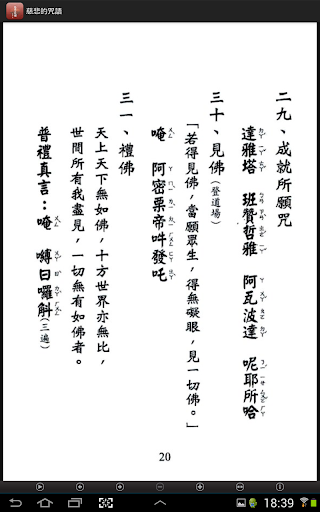 慈悲的咒語
二九、成就所願咒
達雅塔 班贊哲雅 阿瓦波達 呢耶所哈
三十、見佛（登道場）
「若得見佛，當願眾生，得無礙眼，見一切佛。」
唵 阿密栗帝吽發吒
三一、禮佛
天上天下無如佛，十方世界亦無比，
世間所有我盡見，一切無有如佛者。
普禮真言：唵 嚩日囉斛（三遍）
20
18:39